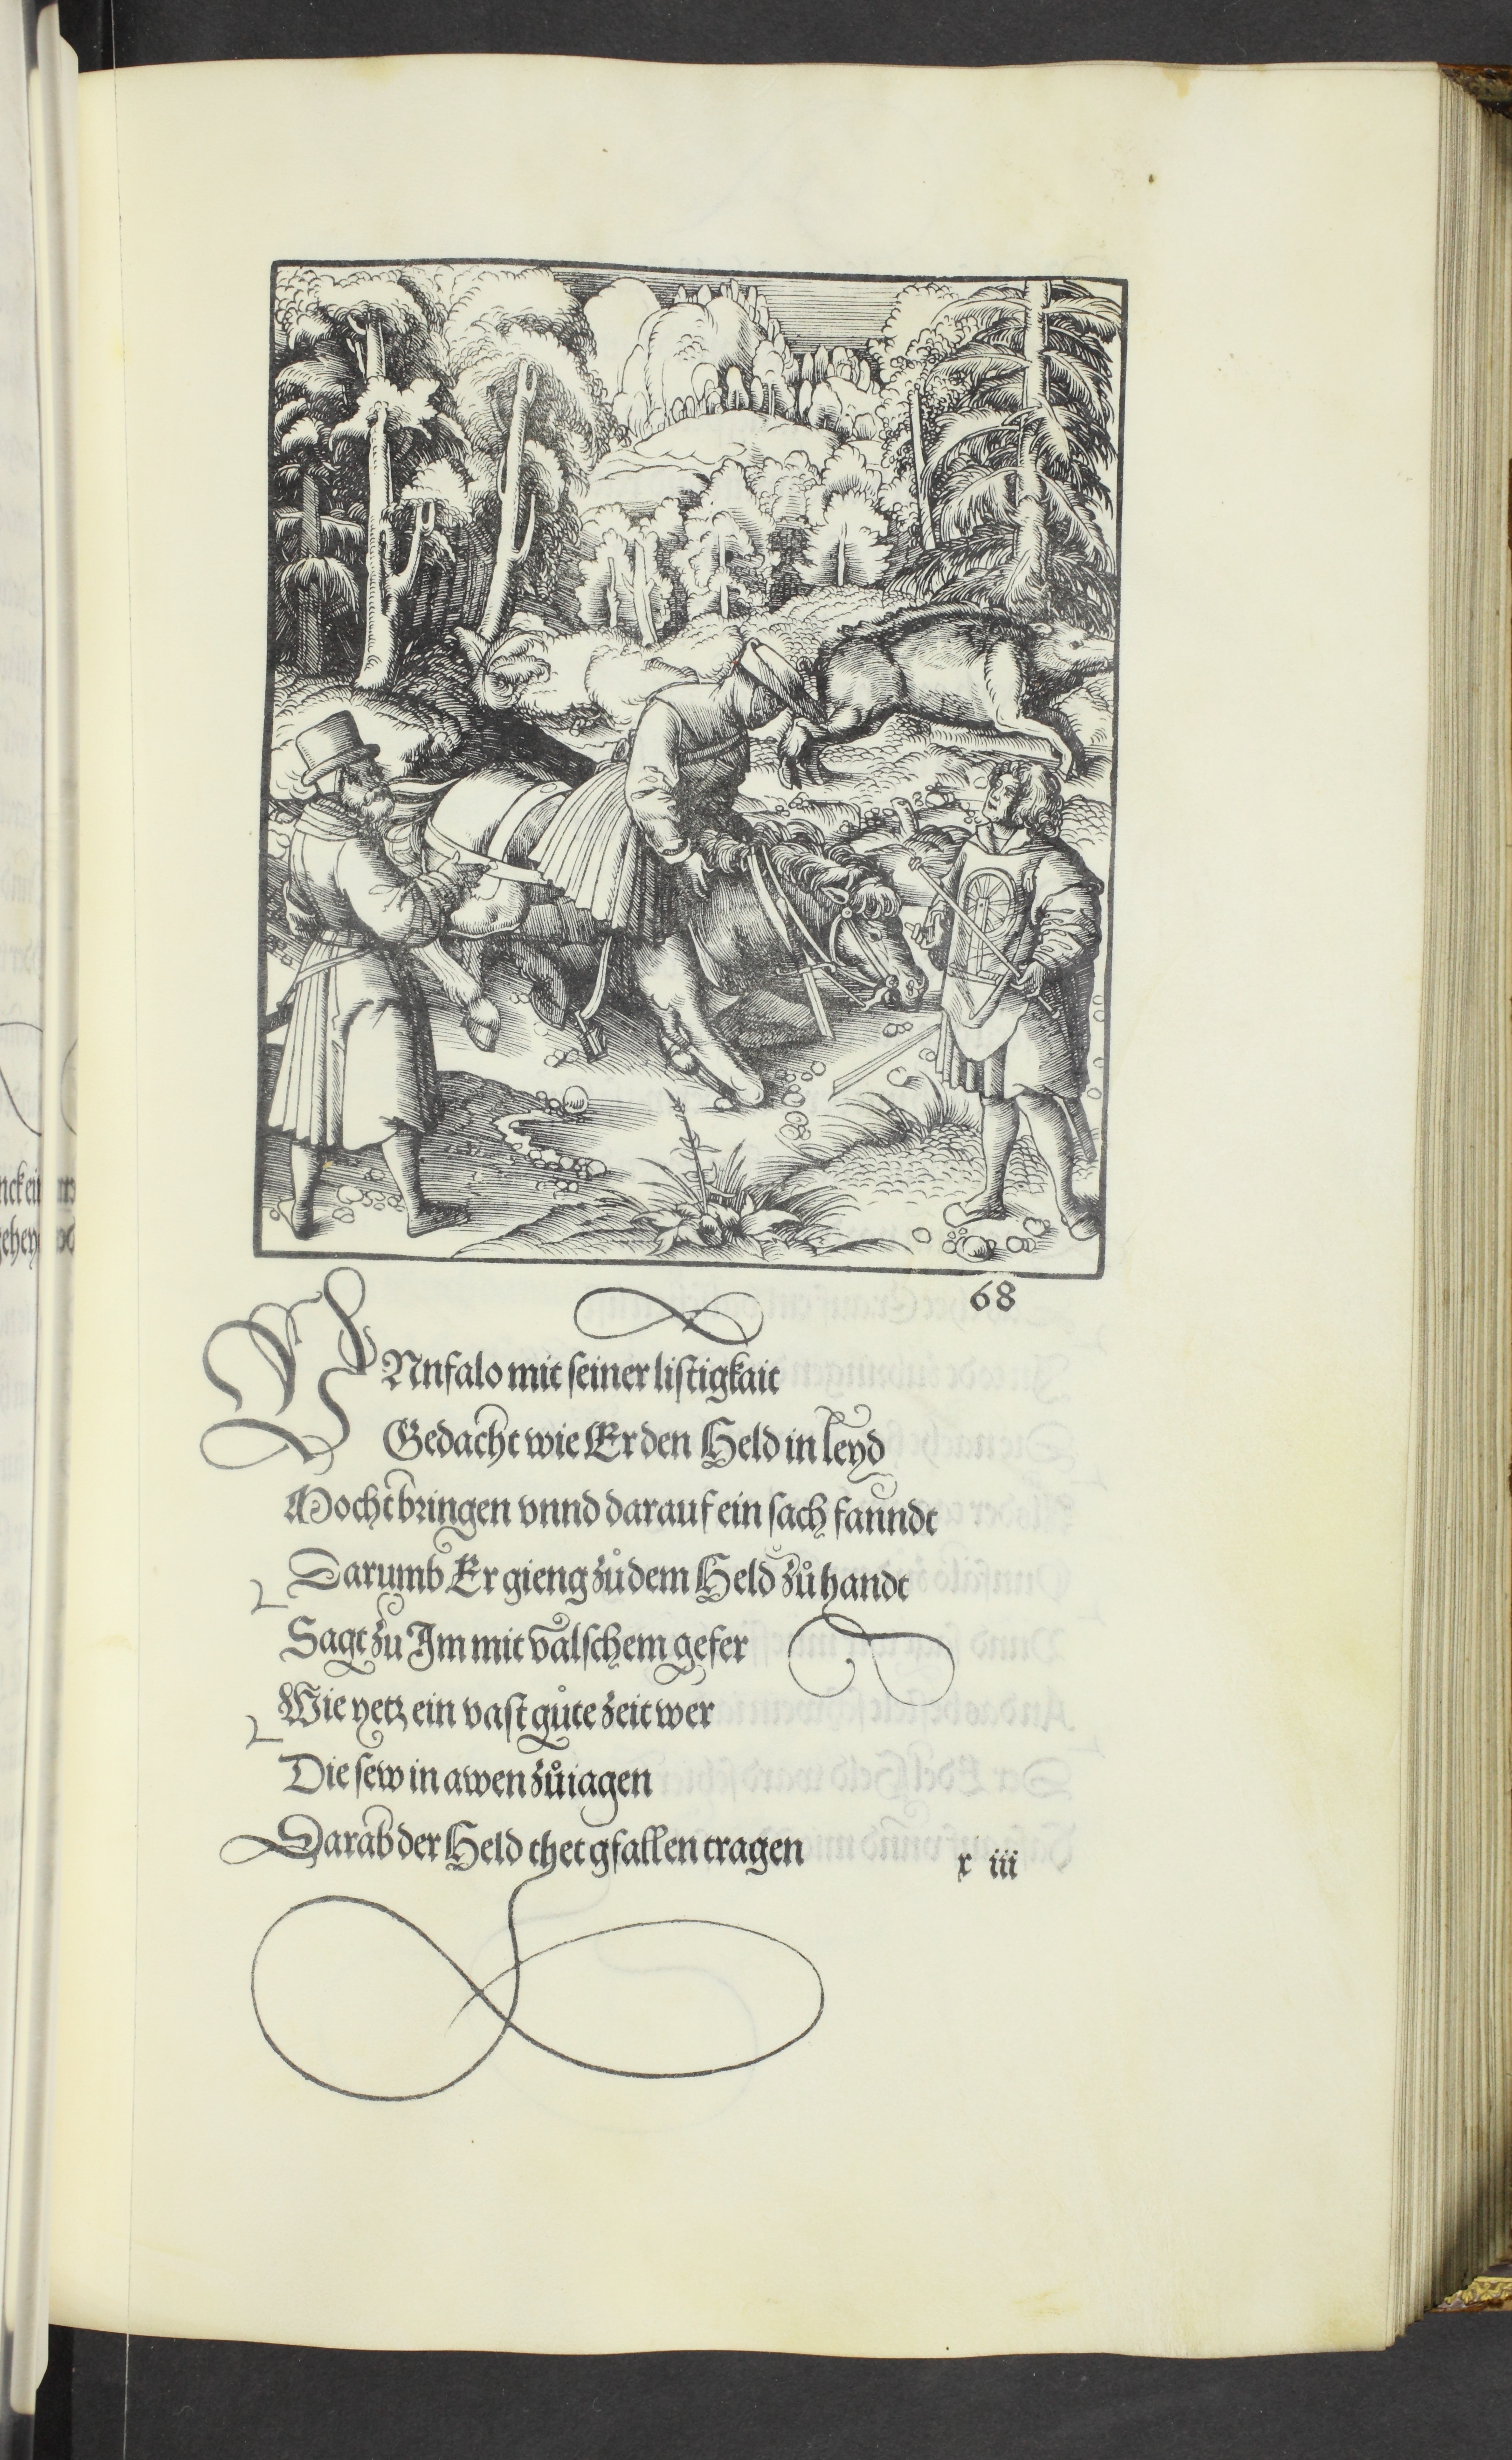 68
VNnfalo mit seiner listigkait
Gedacht wie Er den Held in leyd
Mocht bringen vnnd darauf ein sach fanndt
Darumb Er gieng zů dem Held zů handt
Sagt zu Im mit valschem gefer
Wie yetz ein vast gůte zeit wer
Die sew in awen zů iagen
Darab der Held thet gfallen tragen
x iii